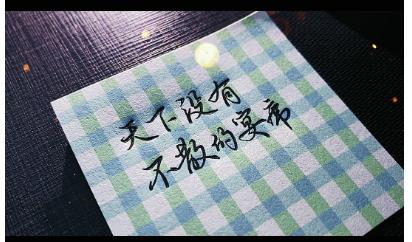 天下没有
不散的宴席